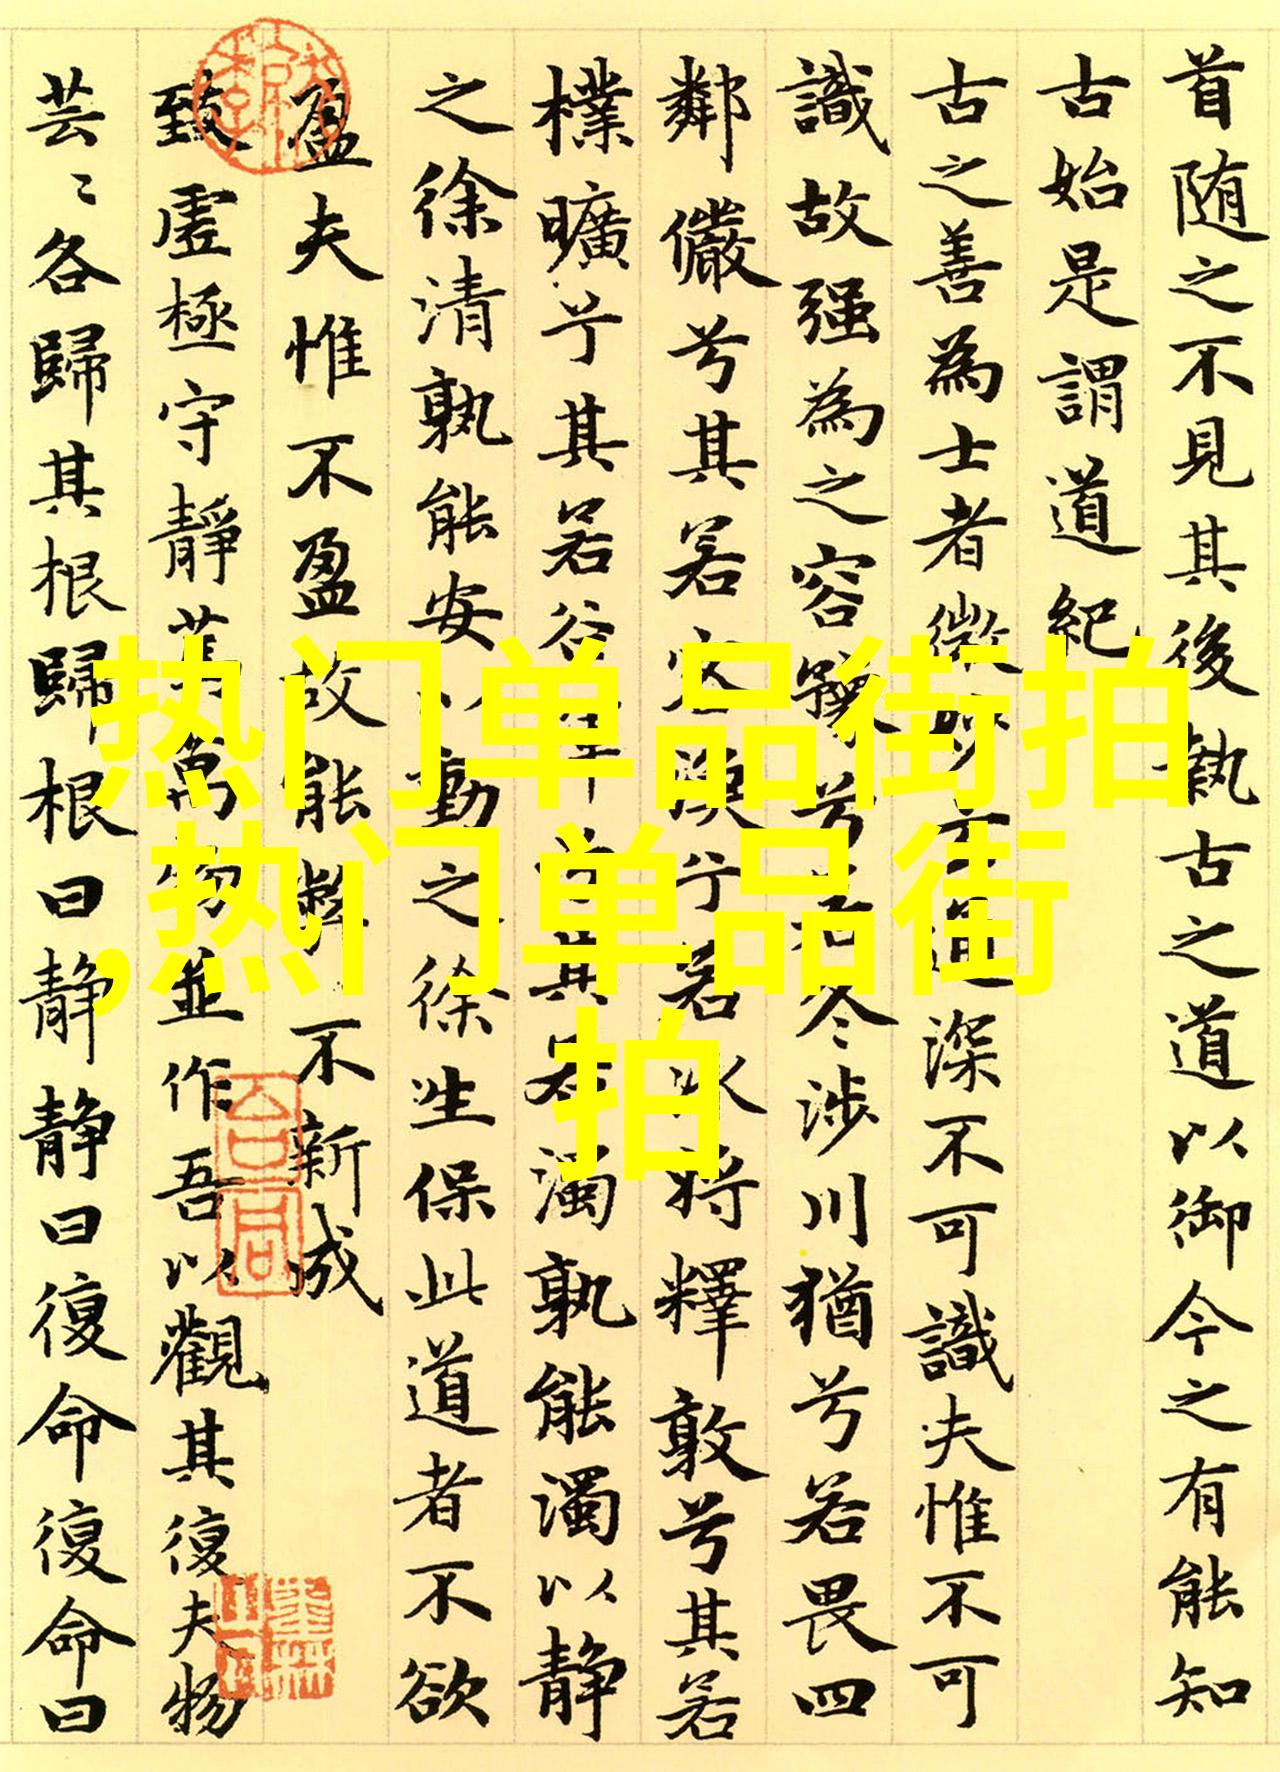 首随之不見其後執古之道以御今之有能知
古始是謂道紀
古之善為士者微妙玄通深不可識夫惟不可
識故强為之容豫兮若冬涉川猶兮若畏四
鄰儼兮其若客渙兮若冰将釋敦兮其若
樸曠兮其若谷渾兮其若濁孰能濁以静
之徐清孰能安以動之徐生保此道者不欲
盈夫惟不盈故能弊不新成
致虛極守靜篤萬物並作吾以觀其復夫物
芸〻各歸其根歸根曰静静曰復命復命曰
热门单品街拍
,热门单品街
拍